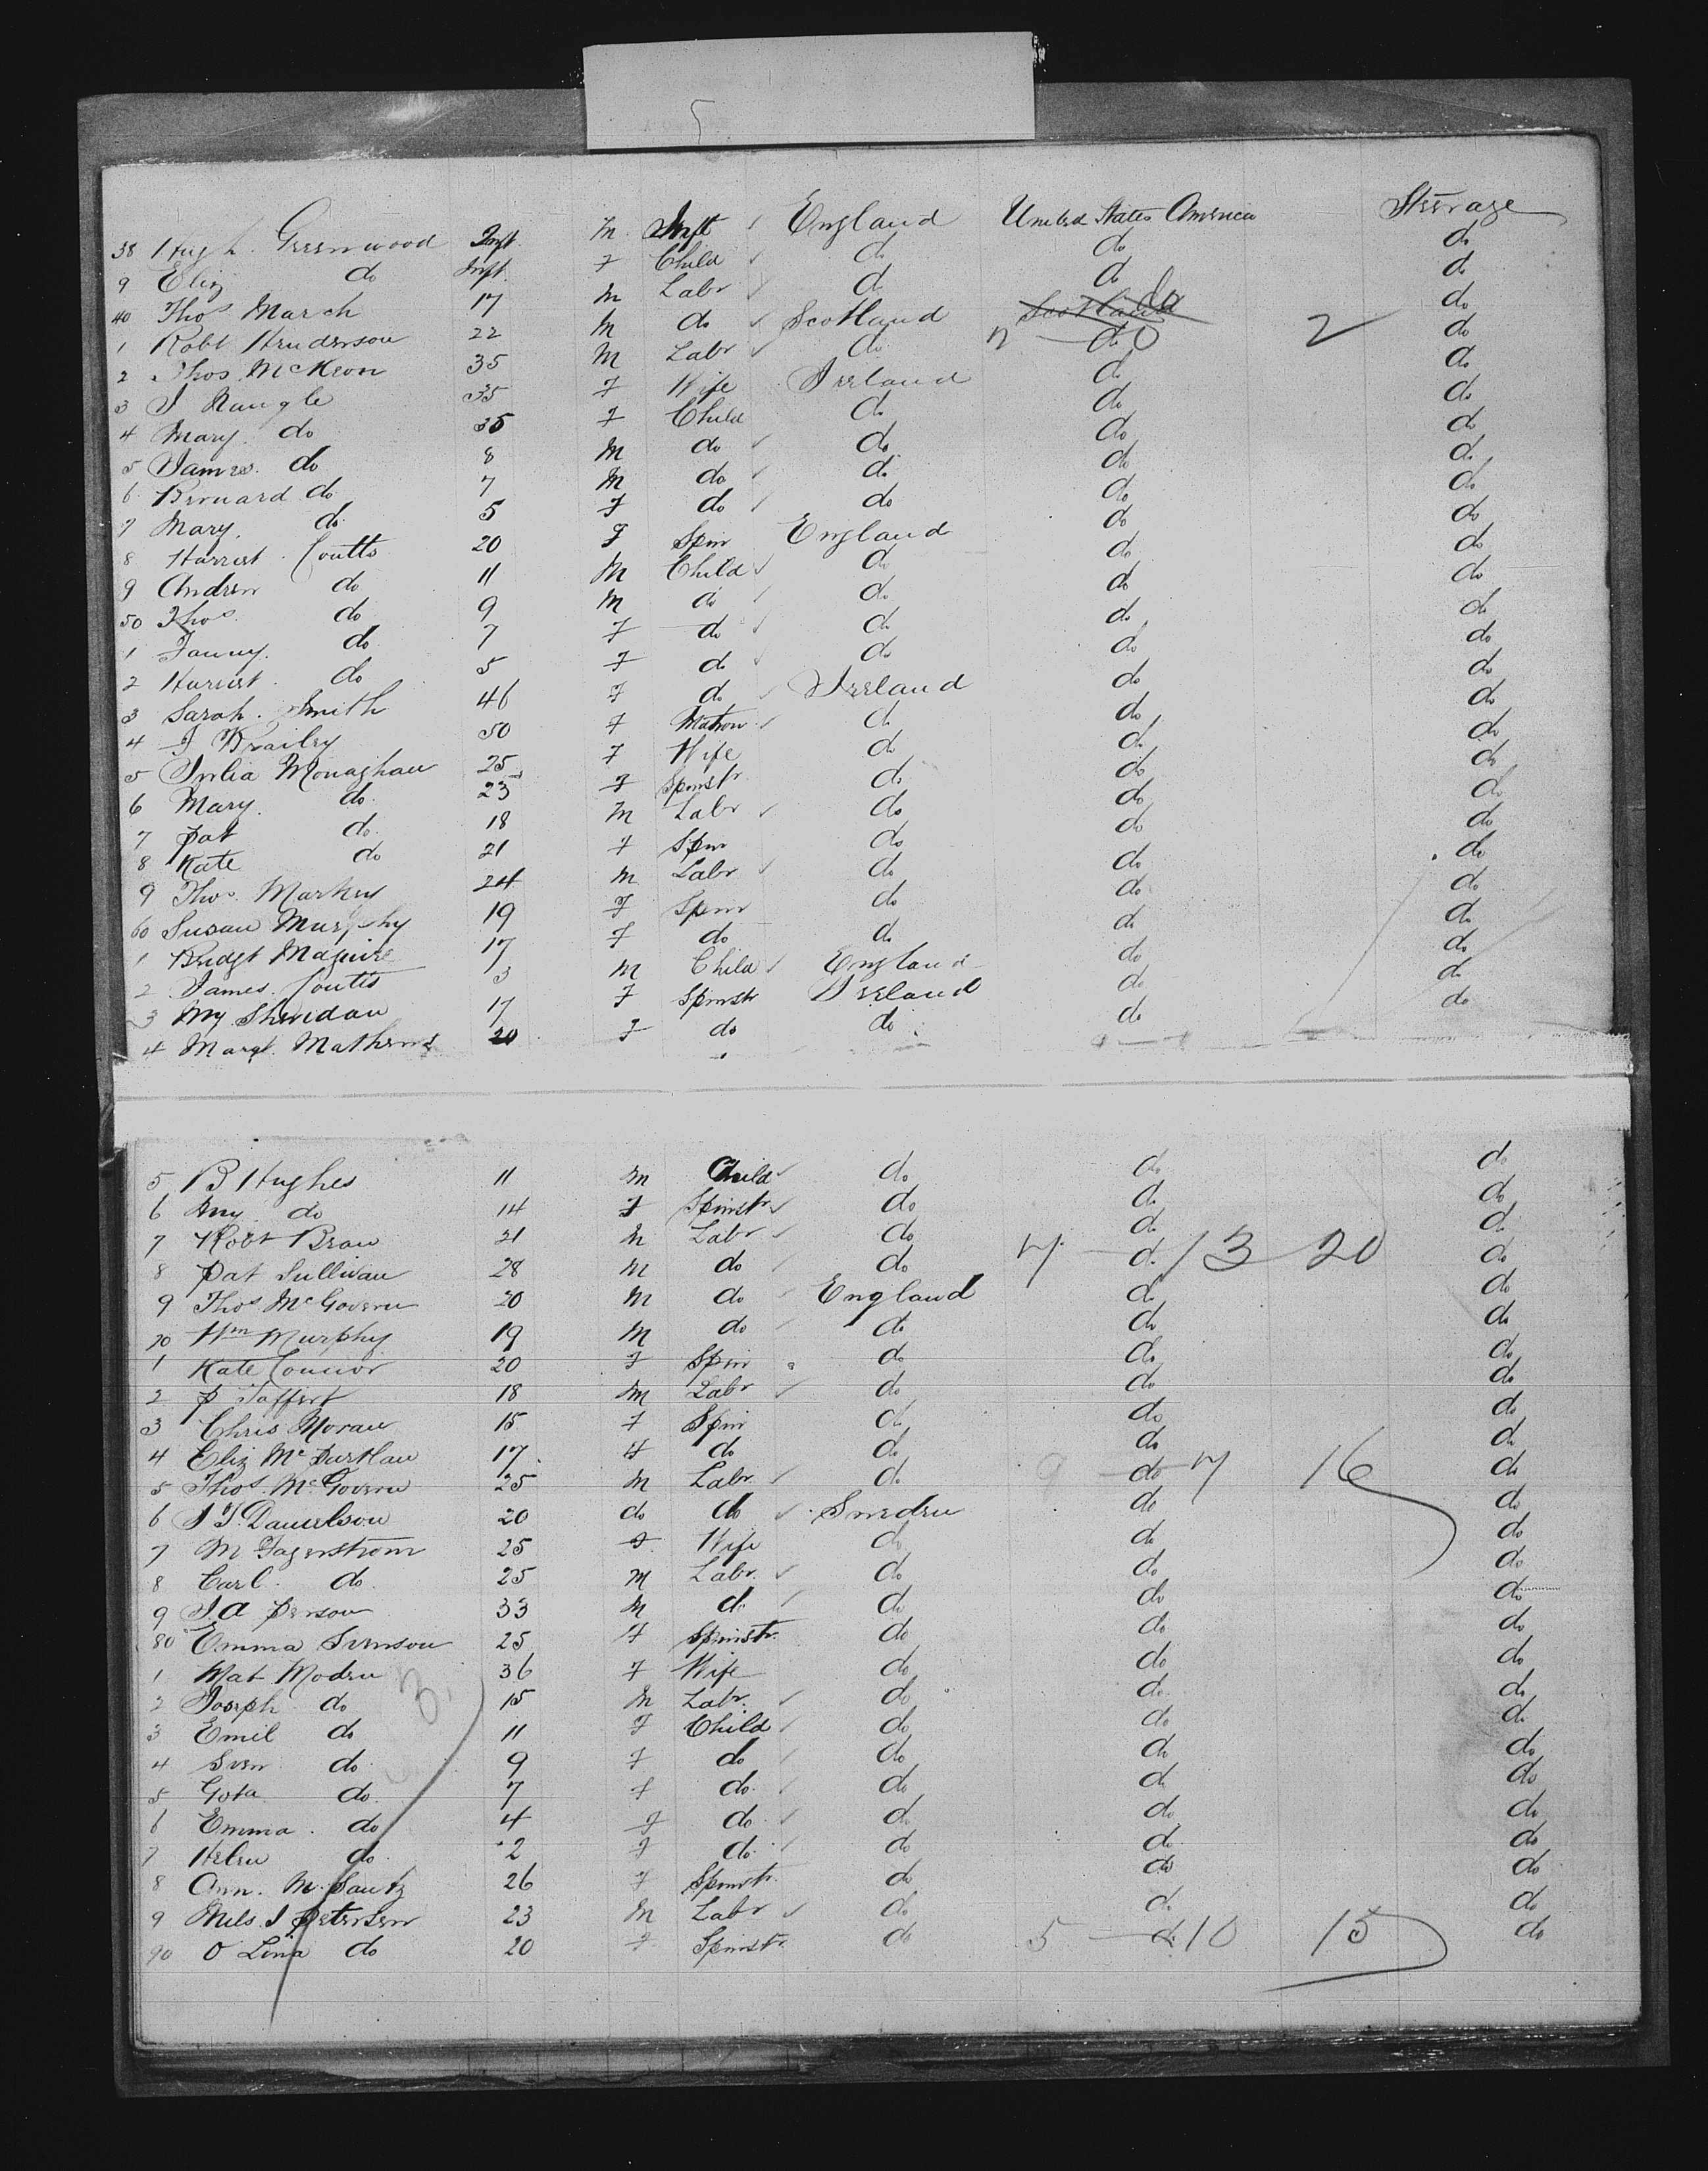 5
38 Hugh Greenwood Inft. M Inft England United States America Steerage
9 Eliz do Inft. F Child do do do
40 Thos March 17 M Labr do do do
1 Robt Henderson 22 M do Scotland Scotland do do
2 Thos. McKeon 35 M Labr do 2 do 0 2 do
3 J Nangle 35 F Wife Ireland do do
4 Mary do 35 F Child do do do
5 James do 8 M do do do do
6 Bernard do 7 M do do do do
7 Mary. do 5 F do do do do
8 Harriet Coutts 20 F Spin England do do
9 Andrew do 11 M Child do do do
50 Thos do 9 M do do do do
1 Fanny. do 7 F do do do do
2 Harriet do 5 F do do do do
3 Sarah. Smith 46 F do Ireland do do
4 J 50 F Matron do do do
5 Julia Monaghan 25 F Wife do do do
6 Mary. do 23 F Spinstr do do do
7 Pat do 18 M Labr do do do
8 Kate do 21 F Spin do do do
9 Thos. Markey 24 M Labr do do do
60 Susan Murphy 19 F Spin do do do
1 Bridgt Maguire 17 F do do do do
2 James. Coutts 3 M Child England do do
3 My Sheridan 17 F Spinstr Ireland do do
4 Margt. Mathews 20 F do do do do
5 B Hughes 11 M Child do do do
6 My do 14 F Spinstr do do do
7 Robt Bran 21 M Labr do do do
8 Pat Sullivan 28 M do do 7 do 13 20 do
9 Thos McGovern 20 M do England do do
70 Wm Murphy 19 M do do do do
1 Kate Connor 20 F Spin do do do
2 P Taffert 18 M Labr do do do
3 Chris Moran 15 F Spin do do do
4 Eliz McPartlan 17 F do do do do
5 Thos. McGovern 25 M Labr. do 9 do 7 16 do
6 J J. Danielson 20 do do Sweden do do
7 M Fagerstrom 25 F Wife do do do
8 Carl. do 25 M Labr. do do do
9 J. A Person 33 M do do do do
80 Emma Svenson 25 F Spinstr. do do do
1 Mat Moden 36 F Wife do do do
2 Joseph do 15 M Labr. do do do
3 Emil do 11 F Child do do do
4 Sven do 9 F do do do do
5 Gota do 7 F do do do do
6 Emma do 4 F do do do do
7 Helen do 2 F do do do do
8 Ann. M. 26 F Spinstr. do do do
9 Nils. J Petersen 23 M Labr do do do
90 O Lina do 20 F Spinstr do 5 do 10 15 do
3